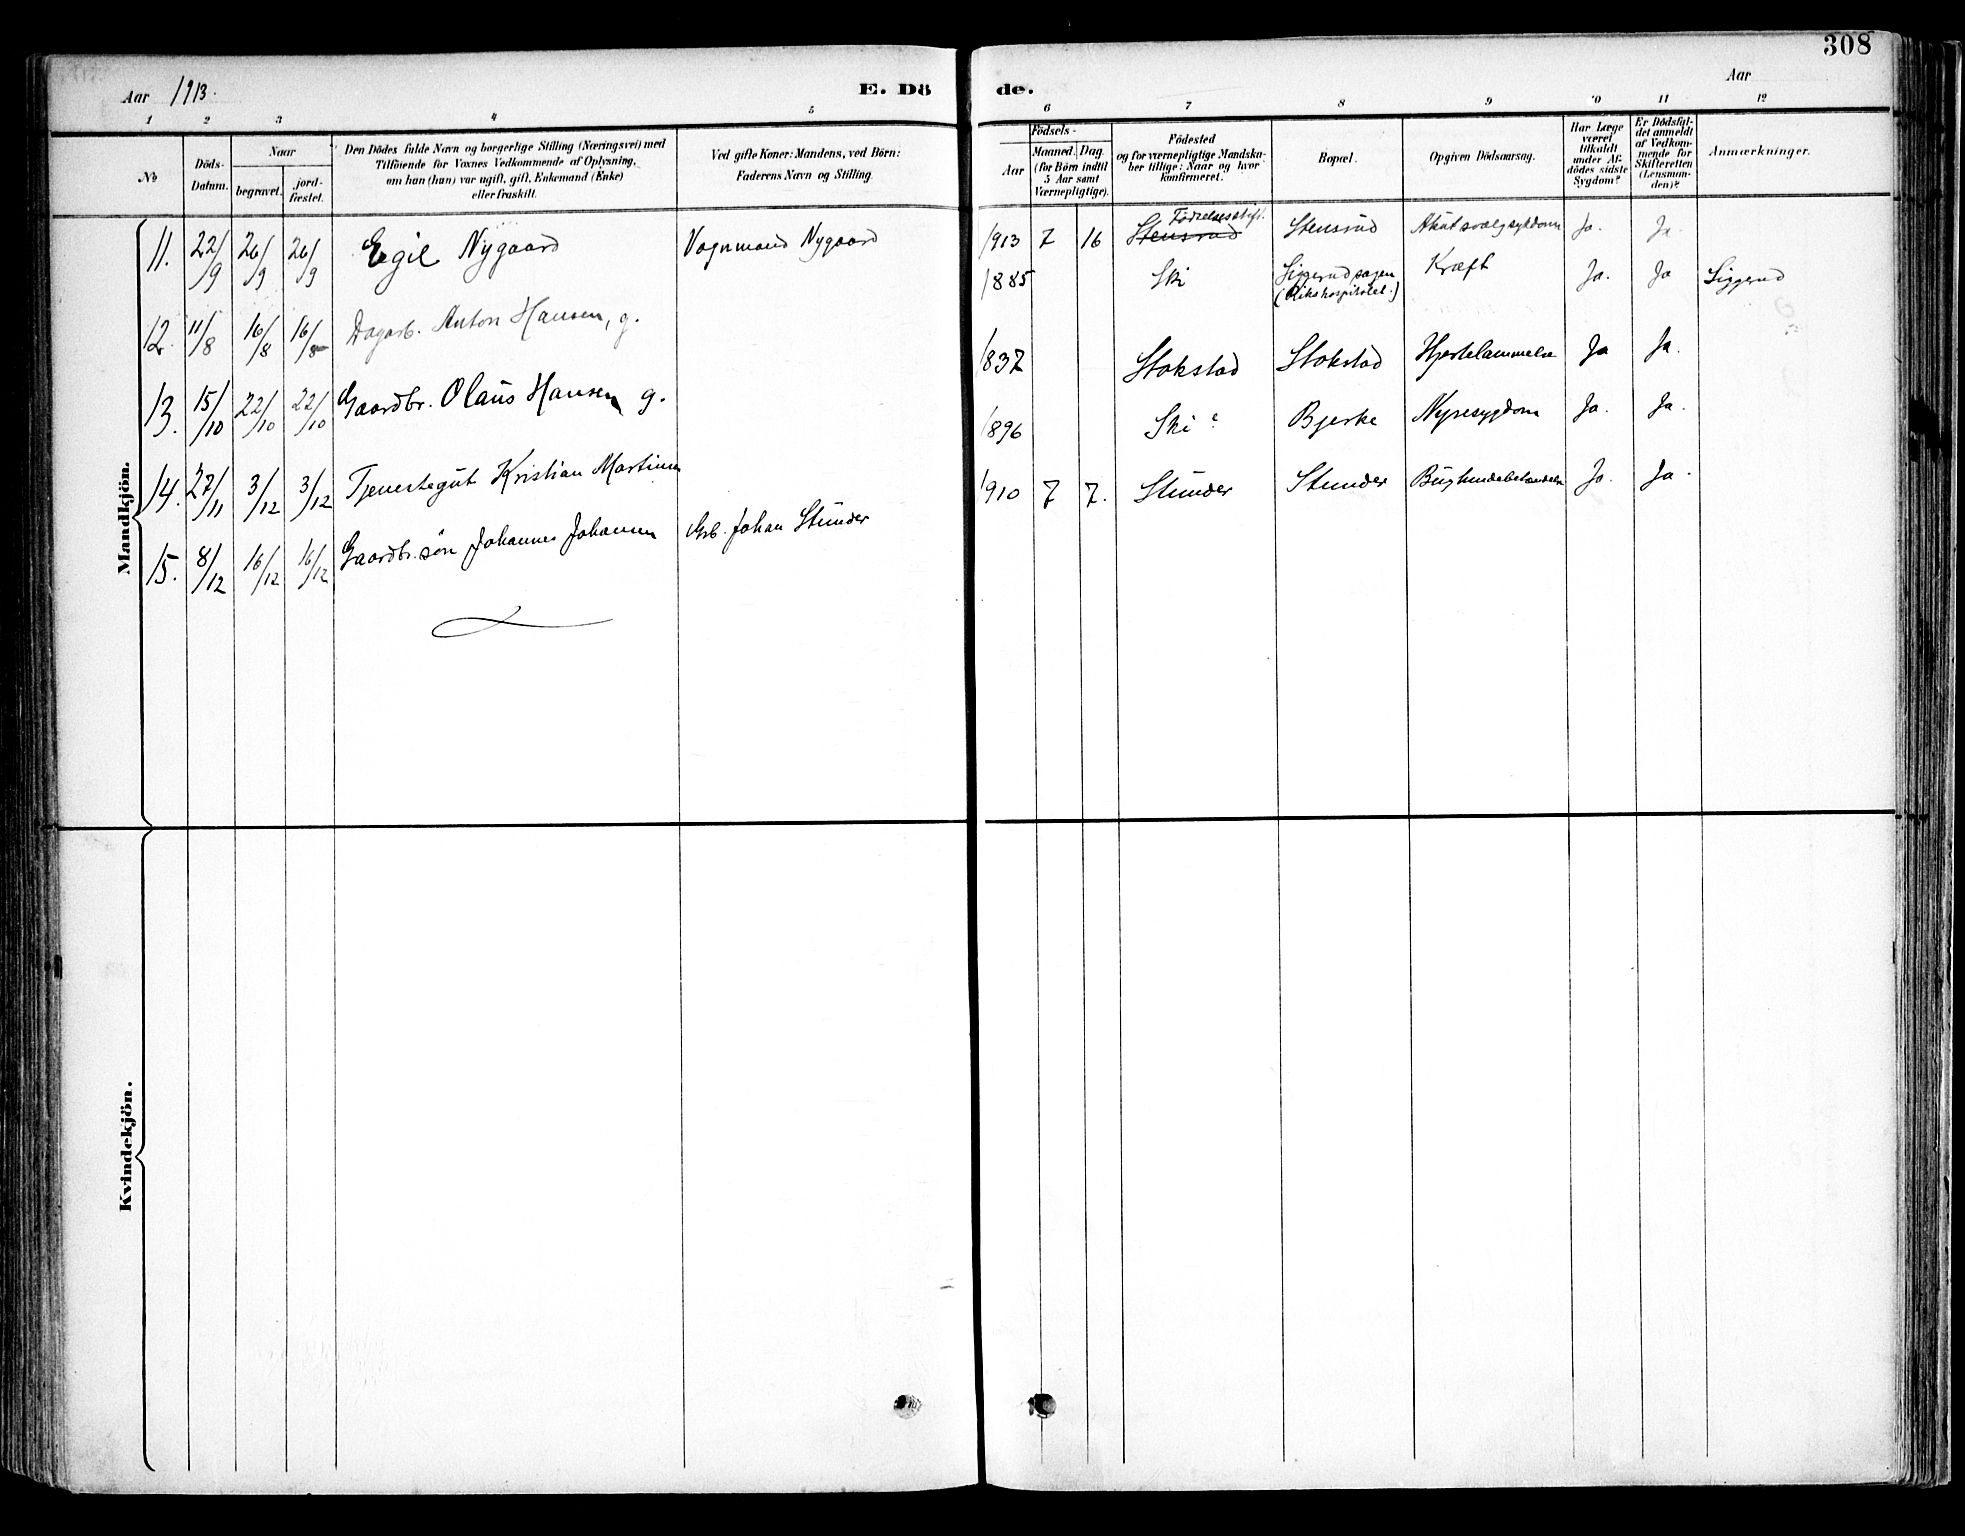 308
Aar 1913.
E. Dö
de.
Aar
1 2 3 4 5 6 7 8 9 10 11 12
No
Döds-
Datum.
Naar
begravet.
jord-
fæstet.
Den Dödes fulde Navn og borgerlige Stilling (Næringsvei) med
Tilföiende for Voxnes Vedkommende af Oplysning,
om han (hun) var ugift, gift, Enkemand (Enke)
eller fraskilt.
Ved gifte Koner: Mandens, ved Börn:
Faderens Navn og Stilling.
Födsels-
Aar
Maaned. Dag
(for Börn indtil
5 Aar samt
Værnepligtige).
Födested
og for værnepligtige Mandska-
ber tillige: Naar og hvor
konfirmeret.
Bopæl.
Opgiven Dödsaarsag.
Har Læge
været
tilkaldt
under Af-
dödes sidste
Sygdom?
Er Dödsfal-
det anmeldt
af Vedkom-
mende for
Skifteretten
(Lensman-
den)?
Anmærkninger.
Mandkjön.
11. 22/9 26/9 26/9 Egil Nygaard Vognmand Nygaard 1913 7 16 Stensrud Fødselsstift. Stensrud Akut svælgsykdom Ja. Ja.
12. 11/8 16/8 16/8 Dagarb. Anton Hansen, g. 1885 Ski Siggerudsagen Kræft Ja. Ja Siggerud
(Rikshospitalet.)
13. 15/10 22/10 22/10 Gaardbr. Olaus Hansen g. 1837 Stokstad Stokstad Hjertelammelse Ja Ja.
14. 27/11 3/12 3/12 Tjenestegut Kristian Martinsen 1896 Ski ? Bjerke Nyresygdom Ja. Ja.
15. 8/12 16/12 16/12 Gaardbr. søn Johannes Johansen Grb. Johan Stunder 1910 7 7. Stunder Stunder Bughindebetændelse Ja. Ja.
Kvindekjön.